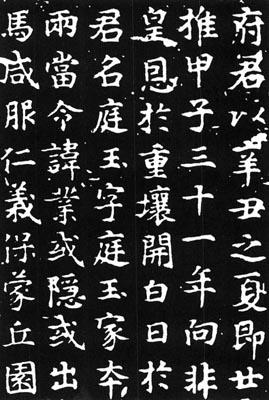 府君以辛丑之夏即廿
推甲子三十一年向非
皇恩於重壤開白日於
君名庭玉字庭玉家本
兩當令諱業或隱或出
馬咸服仁義保蒙丘園